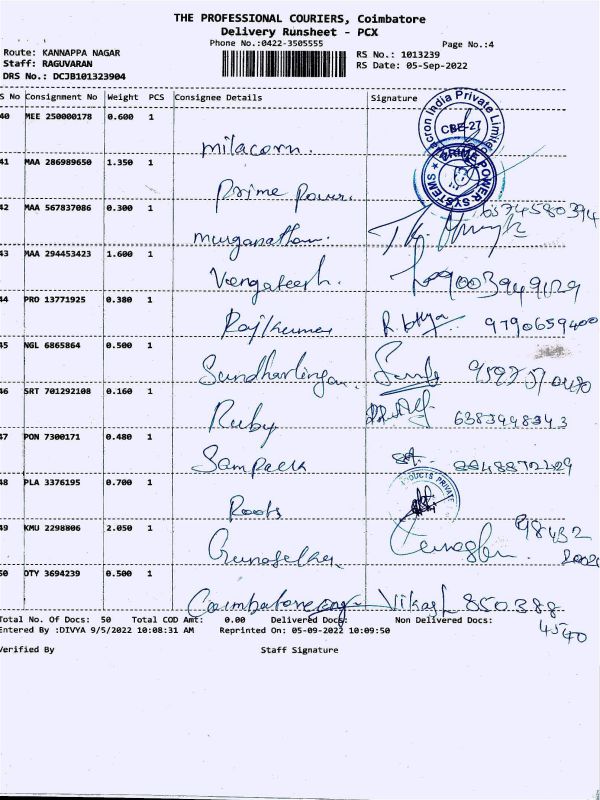 THE PROFESSIONAL COURIERS, Coimbatore
Delivery Runsheet - PCX
Phone No.:0422-3505555
Page No.:4
Route: KANNAPPA NAGAR
RS No.: 1013239
Staff: RAGUVARAN
RS Date: 05-Sep-2022
DRS No.: DCJB101323904
S No Consignment No Weight PCS Consignee Details Signature
40 MEE 250000178 0.600 1
milacorn.
CBE-27
41 MAA 286989650 1.350 1
PRIME POWER SYSTEMS
Prime Power.
42 MAA 567837086 0.300 1
6374580394
muruganatham.
43 MAA 294453423 1.600 1
Vengatesh. 9003949129
44 PRO 13771925 0.380 1
Rajkumar 9790659400
45 NGL 6865864 0.500 1
Sundharlingam.
46 SRT 701292108 0.160 1
Ruby 6383948343
47 PON 7300171 0.480 1
Sampath
48 PLA 3376195 0.700 1
ODUCTS PRIVATE
Roots
49 KMU 2298806 2.050 1
98432
Gunaselkar
50 OTY 3694239 0.500 1
Coimbatore Vikash 850388
4540
Total No. Of Docs: 50 Total COD Amt: 0.00 Delivered Docs: Non Delivered Docs:
Entered By :DIVYA 9/5/2022 10:08:31 AM Reprinted On: 05-09-2022 10:09:50
Verified By Staff Signature